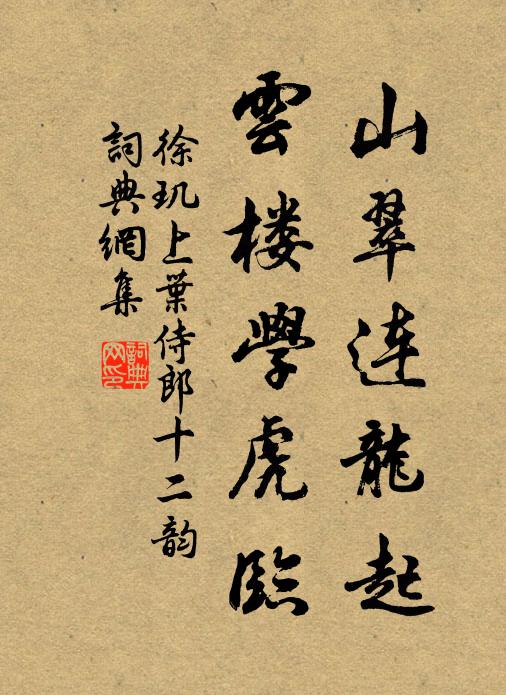 山翠连龍起
雲楼學虎臨
徐玑上葉侍郎十二韵
詞典網集
詞典網印